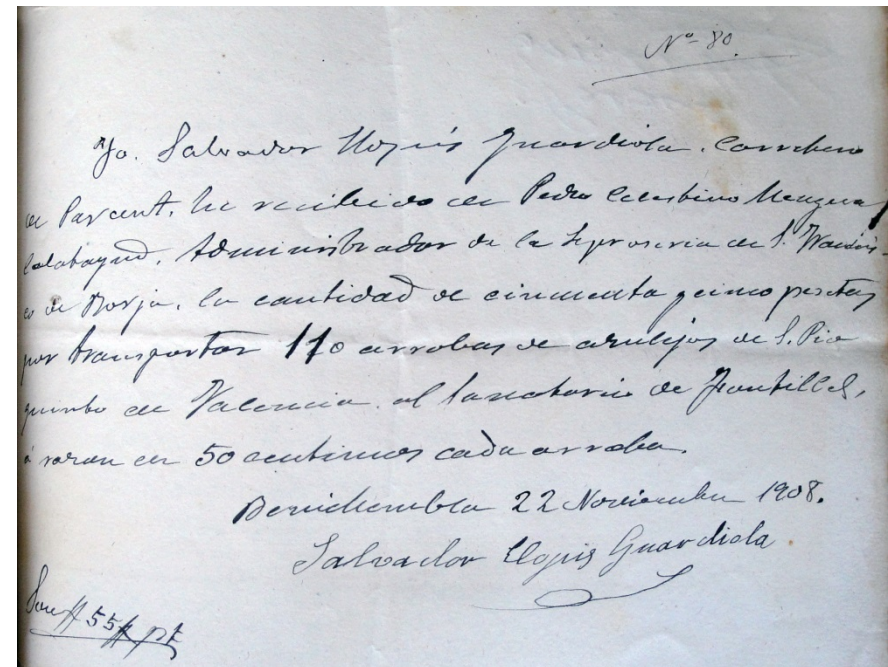 Nº 80.
Yo. Salvador Llopis Guardiola. Carretero
de Parcent. he recibido de Pedro Celestino Menguals
Calatayud. Administrador de la Leproseria de S. Francis-
co de Borja. la cantidad de cincuenta y cinco pesetas
por transportar 110 arrobas de azulejos de S. Pio
quinto de Valencia al Sanatorio de Fontilles,
á razon de 50 centimos cada arroba.
Benichembla 22 Noviembre 1908.
Salvador Llopis Guardiola
Son # 55 # pt